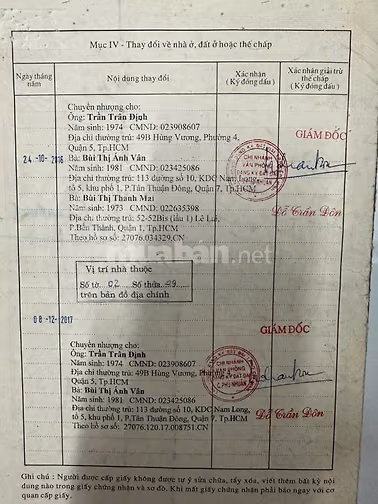 Mục IV - Thay đổi về nhà ở, đất ở hoặc thế chấp
Ngày tháng năm
Nội dung thay đổi
Xác nhận (Ký đóng dấu)
Xác nhận giải trừ thế chấp (Ký đóng dấu)
24-10-2016
Chuyển nhượng cho:
Ông: Trần Trân Định
Năm sinh: 1974 CMND: 023908607
Địa chỉ thường trú: 49B Hùng Vương, Phường 4,
Quận 5, Tp.HCM
Bà: Bùi Thị Ánh Vân
Năm sinh: 1981 CMND: 023425086
Địa chỉ thường trú: 113 đường số 10, KDC Nam Long,
tổ 5, khu phố 1, P.Tân Thuận Đông, Quận 7, Tp.HCM
Bà: Bùi Thị Thanh Mai
Năm sinh: 1973 CMND: 022635398
Địa chỉ thường trú: 52-52Bis (lầu 1) Lê Lợi,
P.Bến Thành, Quận 1, Tp.HCM
Theo hồ sơ số: 27076.034329.CN
GIÁM ĐỐC
CHI NHÁNH
VĂN PHÒNG
ĐĂNG KÝ ĐẤT ĐAI
Đỗ Trần Đôn
.net
Vị trí nhà thuộc
Số tờ 02 Số thửa 29
trên bản đồ địa chính
08-12-2017
Chuyển nhượng cho:
Ông: Trần Trân Định
Năm sinh: 1974 CMND: 023908607
Địa chỉ thường trú: 49B Hùng Vương, Phường 4,
Quận 5, Tp.HCM
Bà: Bùi Thị Ánh Vân
Năm sinh: 1981 CMND: 023425086
Địa chỉ thường trú: 113 đường số 10, KDC Nam Long,
tổ 5, khu phố 1, P.Tân Thuận Đông, Quận 7, Tp.HCM
Theo hồ sơ số: 27076.120.17.008751.CN
GIÁM ĐỐC
CHI NHÁNH
VĂN PHÒNG
ĐĂNG KÝ ĐẤT ĐAI
Q.PHÚ NHUẬN
Đỗ Trần Đôn
Ghi chú : Người được cấp giấy không được tự ý sửa chữa, tẩy xóa, viết thêm bất kỳ nội
dung nào trong giấy chứng nhận và sơ đồ. Khi mất giấy chứng nhận phải báo ngay với cơ
quan cấp giấy.